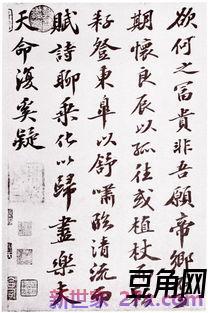 欲何之富貴非吾願帝鄉
期懷良辰以孤往或植杖
耔登東皋以舒嘯臨清流而
賦詩聊乘化以歸盡樂夫
天命復奚疑
豆角网
新世家